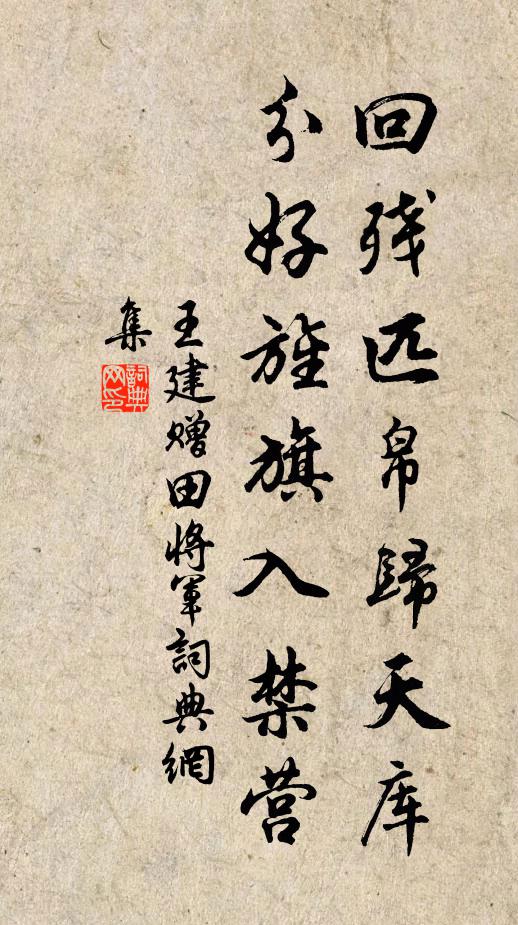 回残匹帛歸天库
分好旌旗入禁营
王建赠田将军詞典網
集
詞典
网印